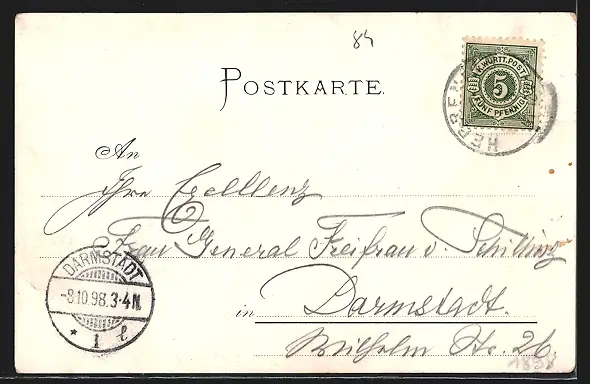 84
POSTKARTE.
K.WÜRTT.POST
5
FÜNF PFENNIG
HERREN
An
Ihre Exzellenz
Frau General Freifrau v. Schilling
DARMSTADT
-8.10.98.3-4N.
* 1 l
in Darmstadt.
Wilhelm Str. 26
1898